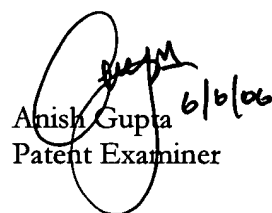 6/6/06
Anish Gupta
Patent Examiner